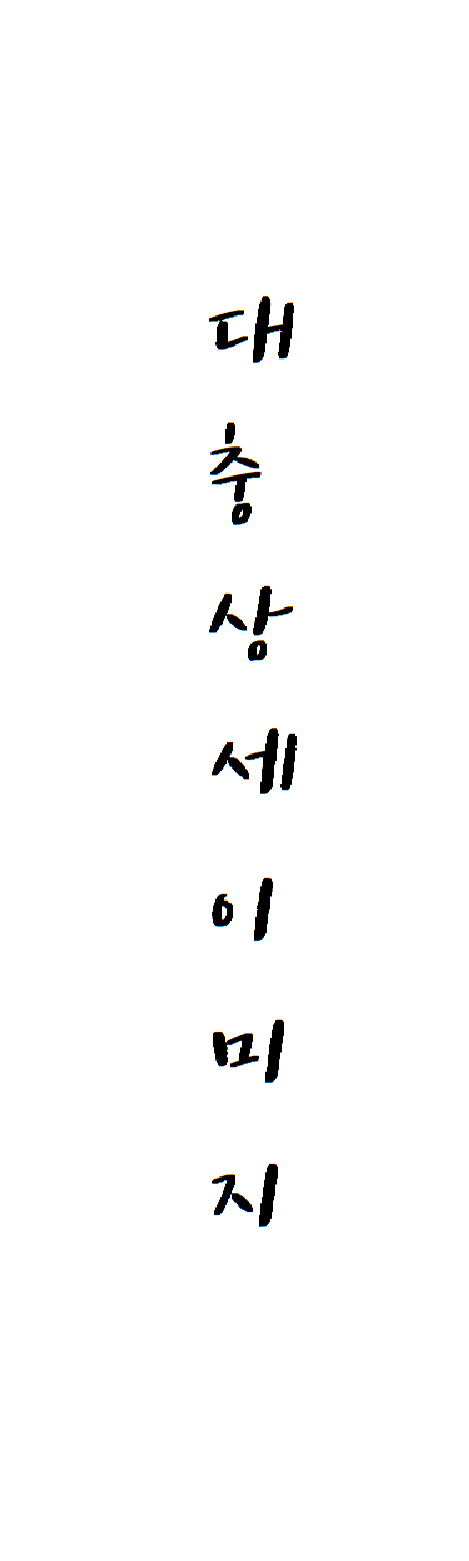 대
충
상
세
이
미
지